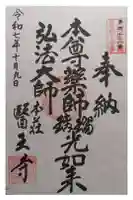 奉納
本尊藥師瑠璃光如来
弘法大師
本荘
醫王寺
令和七年十月九日